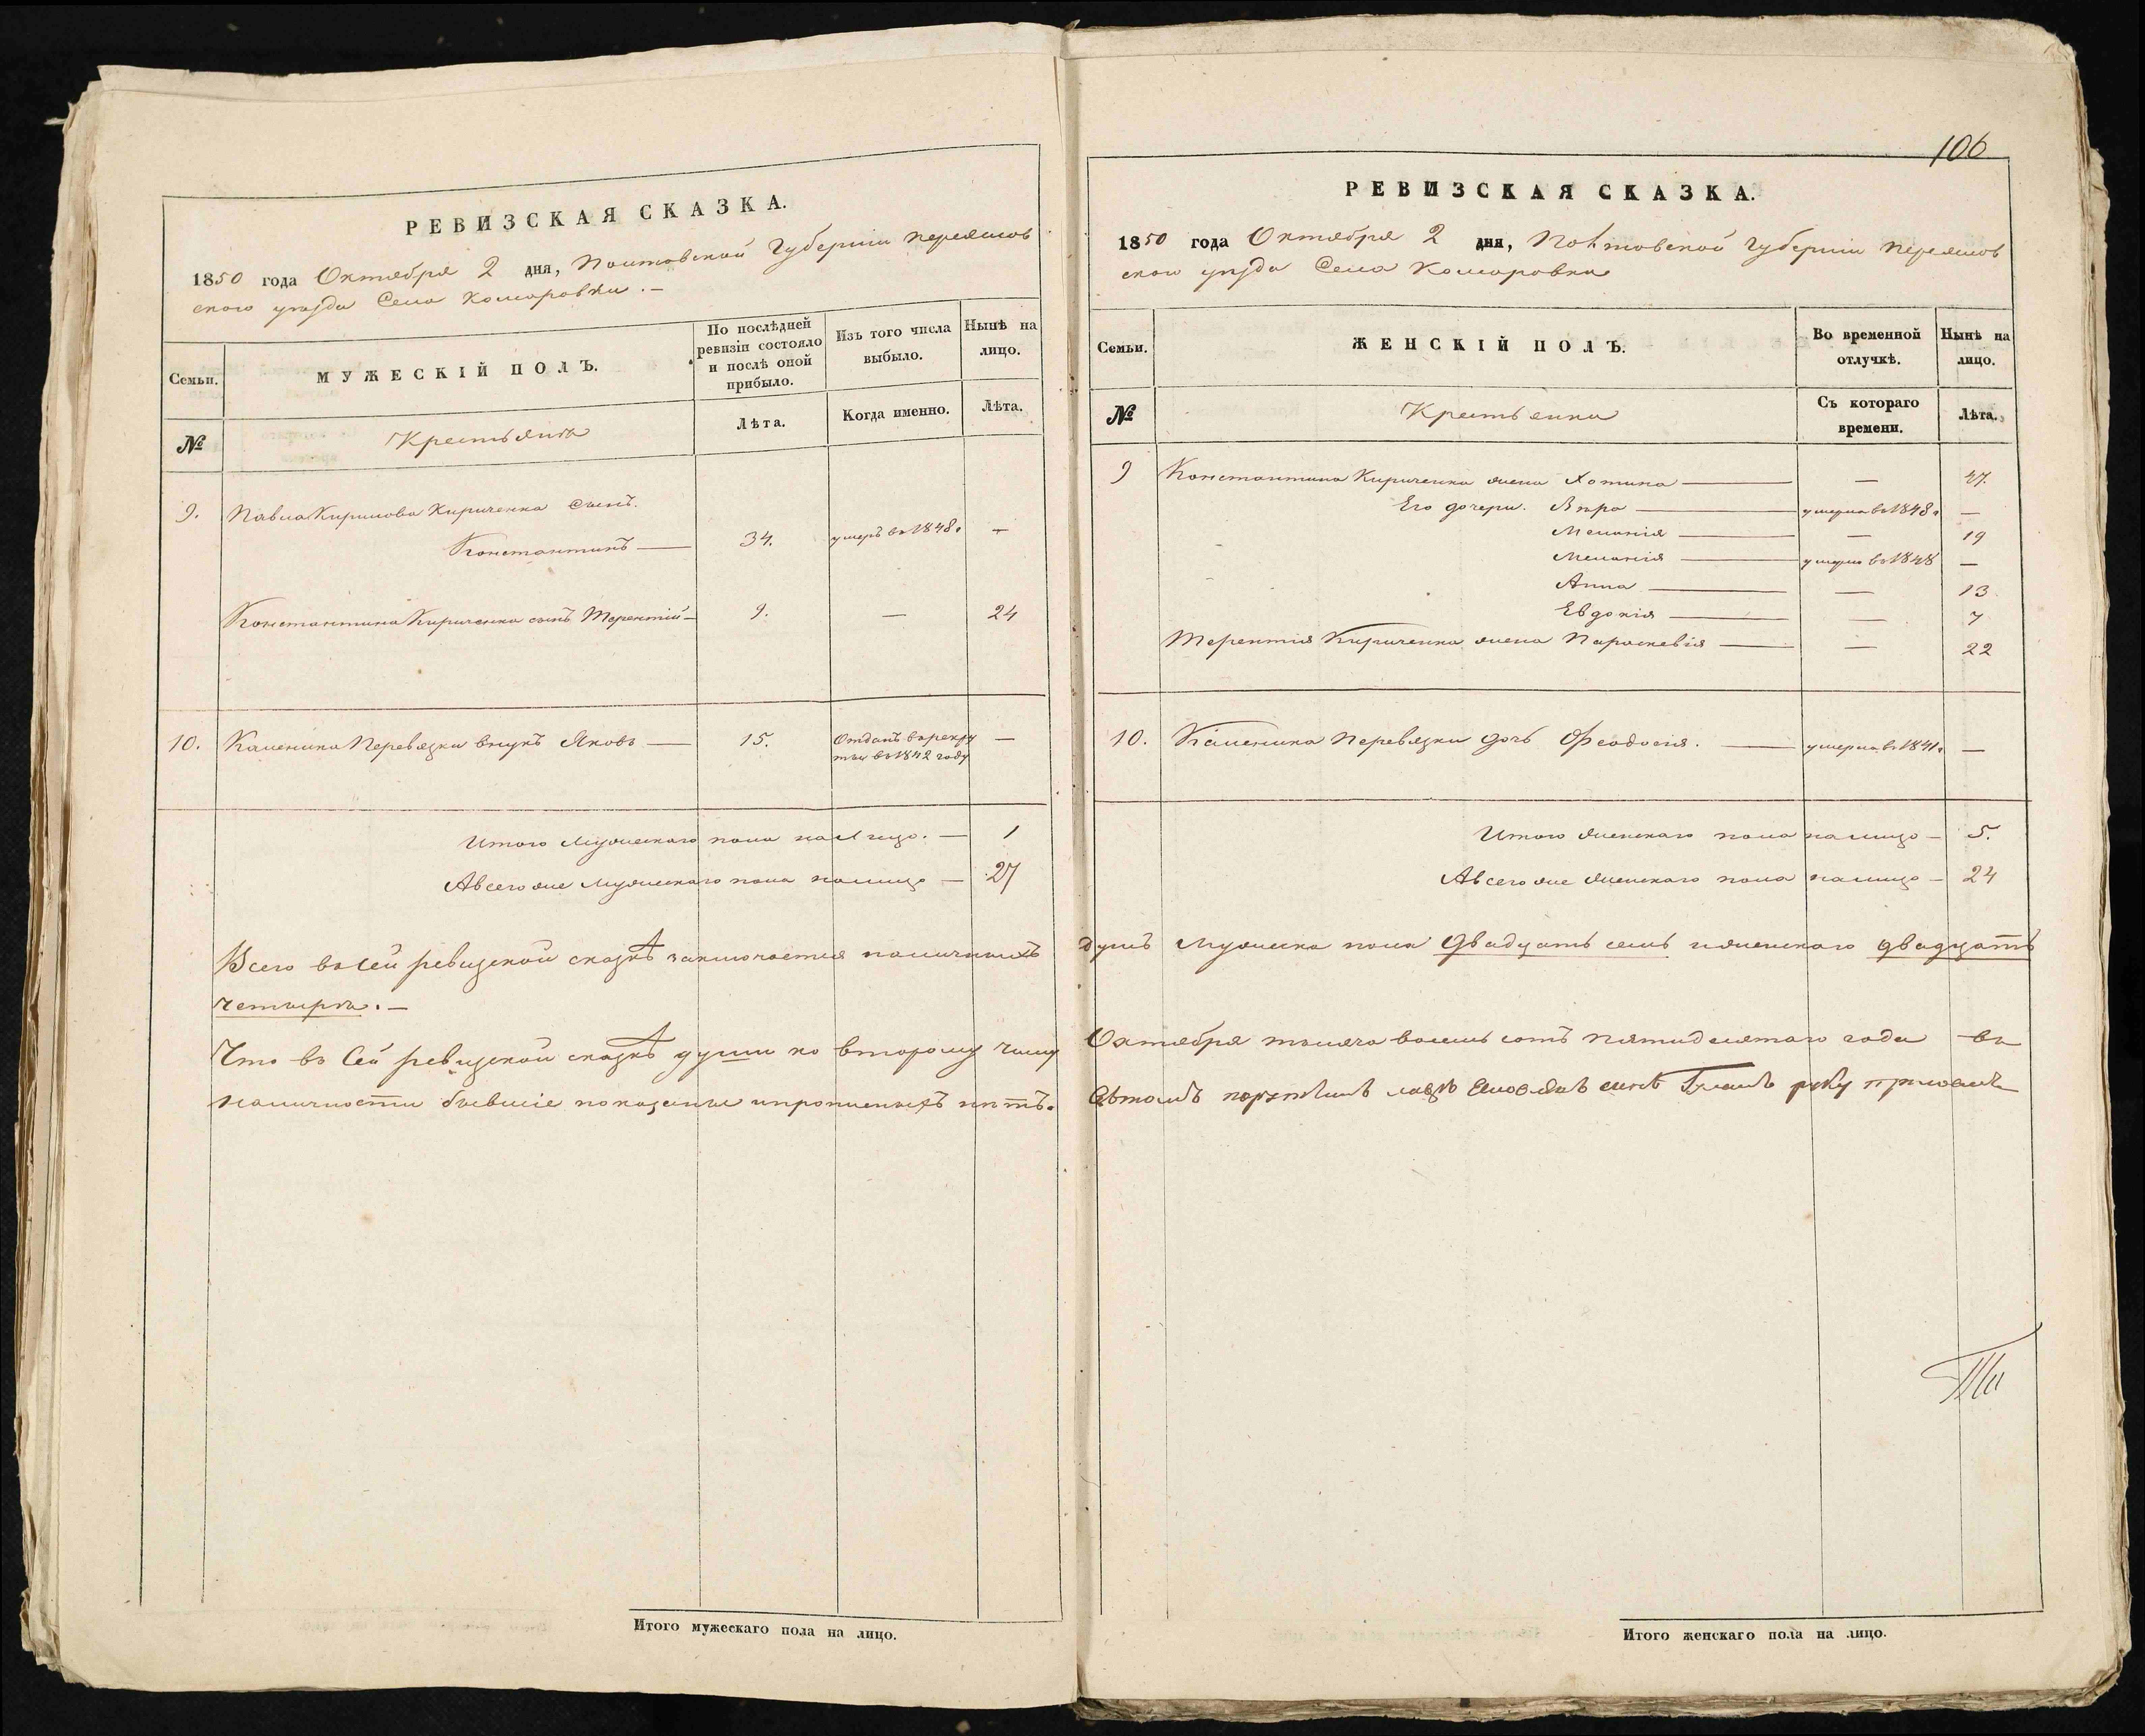 РЕВИЗСКАЯ СКАЗКА.
1850 года Октября 2 дня, Полтавской Губерніи Переяслов
ского уѣзда Села Комаровки. —
Семьи.
МУЖЕСКІЙ ПОЛЪ.
По послѣдней ревизіи состояло и послѣ оной прибыло.
Изъ того числа выбыло.
Нынѣ на лицо.
№
Крестьяне
Лѣта.
Когда именно.
Лѣта.
9. Павла Кирилова Кириченка Сынъ.
Константинъ — 34. умеръ въ 1848. —
Константина Кириченка сынъ Терентій — 9. — 24
10. Каленика Перевязки внукъ Яковъ — 15. Отданъ въ рекру —
ты въ 1842 году
Итого Мужескаго пола на Лицо. — 1
А всего же Мужескаго пола налицо — 27
Всего въ сей ревизской сказкѣ заключается наличныхъ
четыре. —
Что въ Сей ревизской сказкѣ души ко второму числу
наличности бывшіе показаны и прописныхъ нѣтъ.
Итого мужескаго пола на лицо.
106
РЕВИЗСКАЯ СКАЗКА.
1850 года Октября 2 дня, Полтавской Губерніи Переяслов
ского уѣзда Села Комаровки
Семьи.
ЖЕНСКІЙ ПОЛЪ.
Во временной отлучкѣ.
Нынѣ на лицо.
№
Крестьянки
Съ котораго времени.
Лѣта.
9 Константина Кириченка жена Хотина — — 47.
Его дочери. Вѣра — умерла въ 1848. —
Меланія — — 19
Меланія — умерла въ 1848 —
Анна — — 13
Евдокія — — 7
Терентія Кириченка жена Параскевія — — 22
10. Каленика Перевязки дочь Феодосія. — умерла въ 1841. —
Итого женскаго пола налицо — 5.
А всего же женскаго пола налицо — 24
душъ Мужеска пола Двадцать семь и женскаго двадцать
Октября тысяча восемь сотъ пятидесятаго года въ
сынъ руку приложилъ
Итого женскаго пола на лицо.